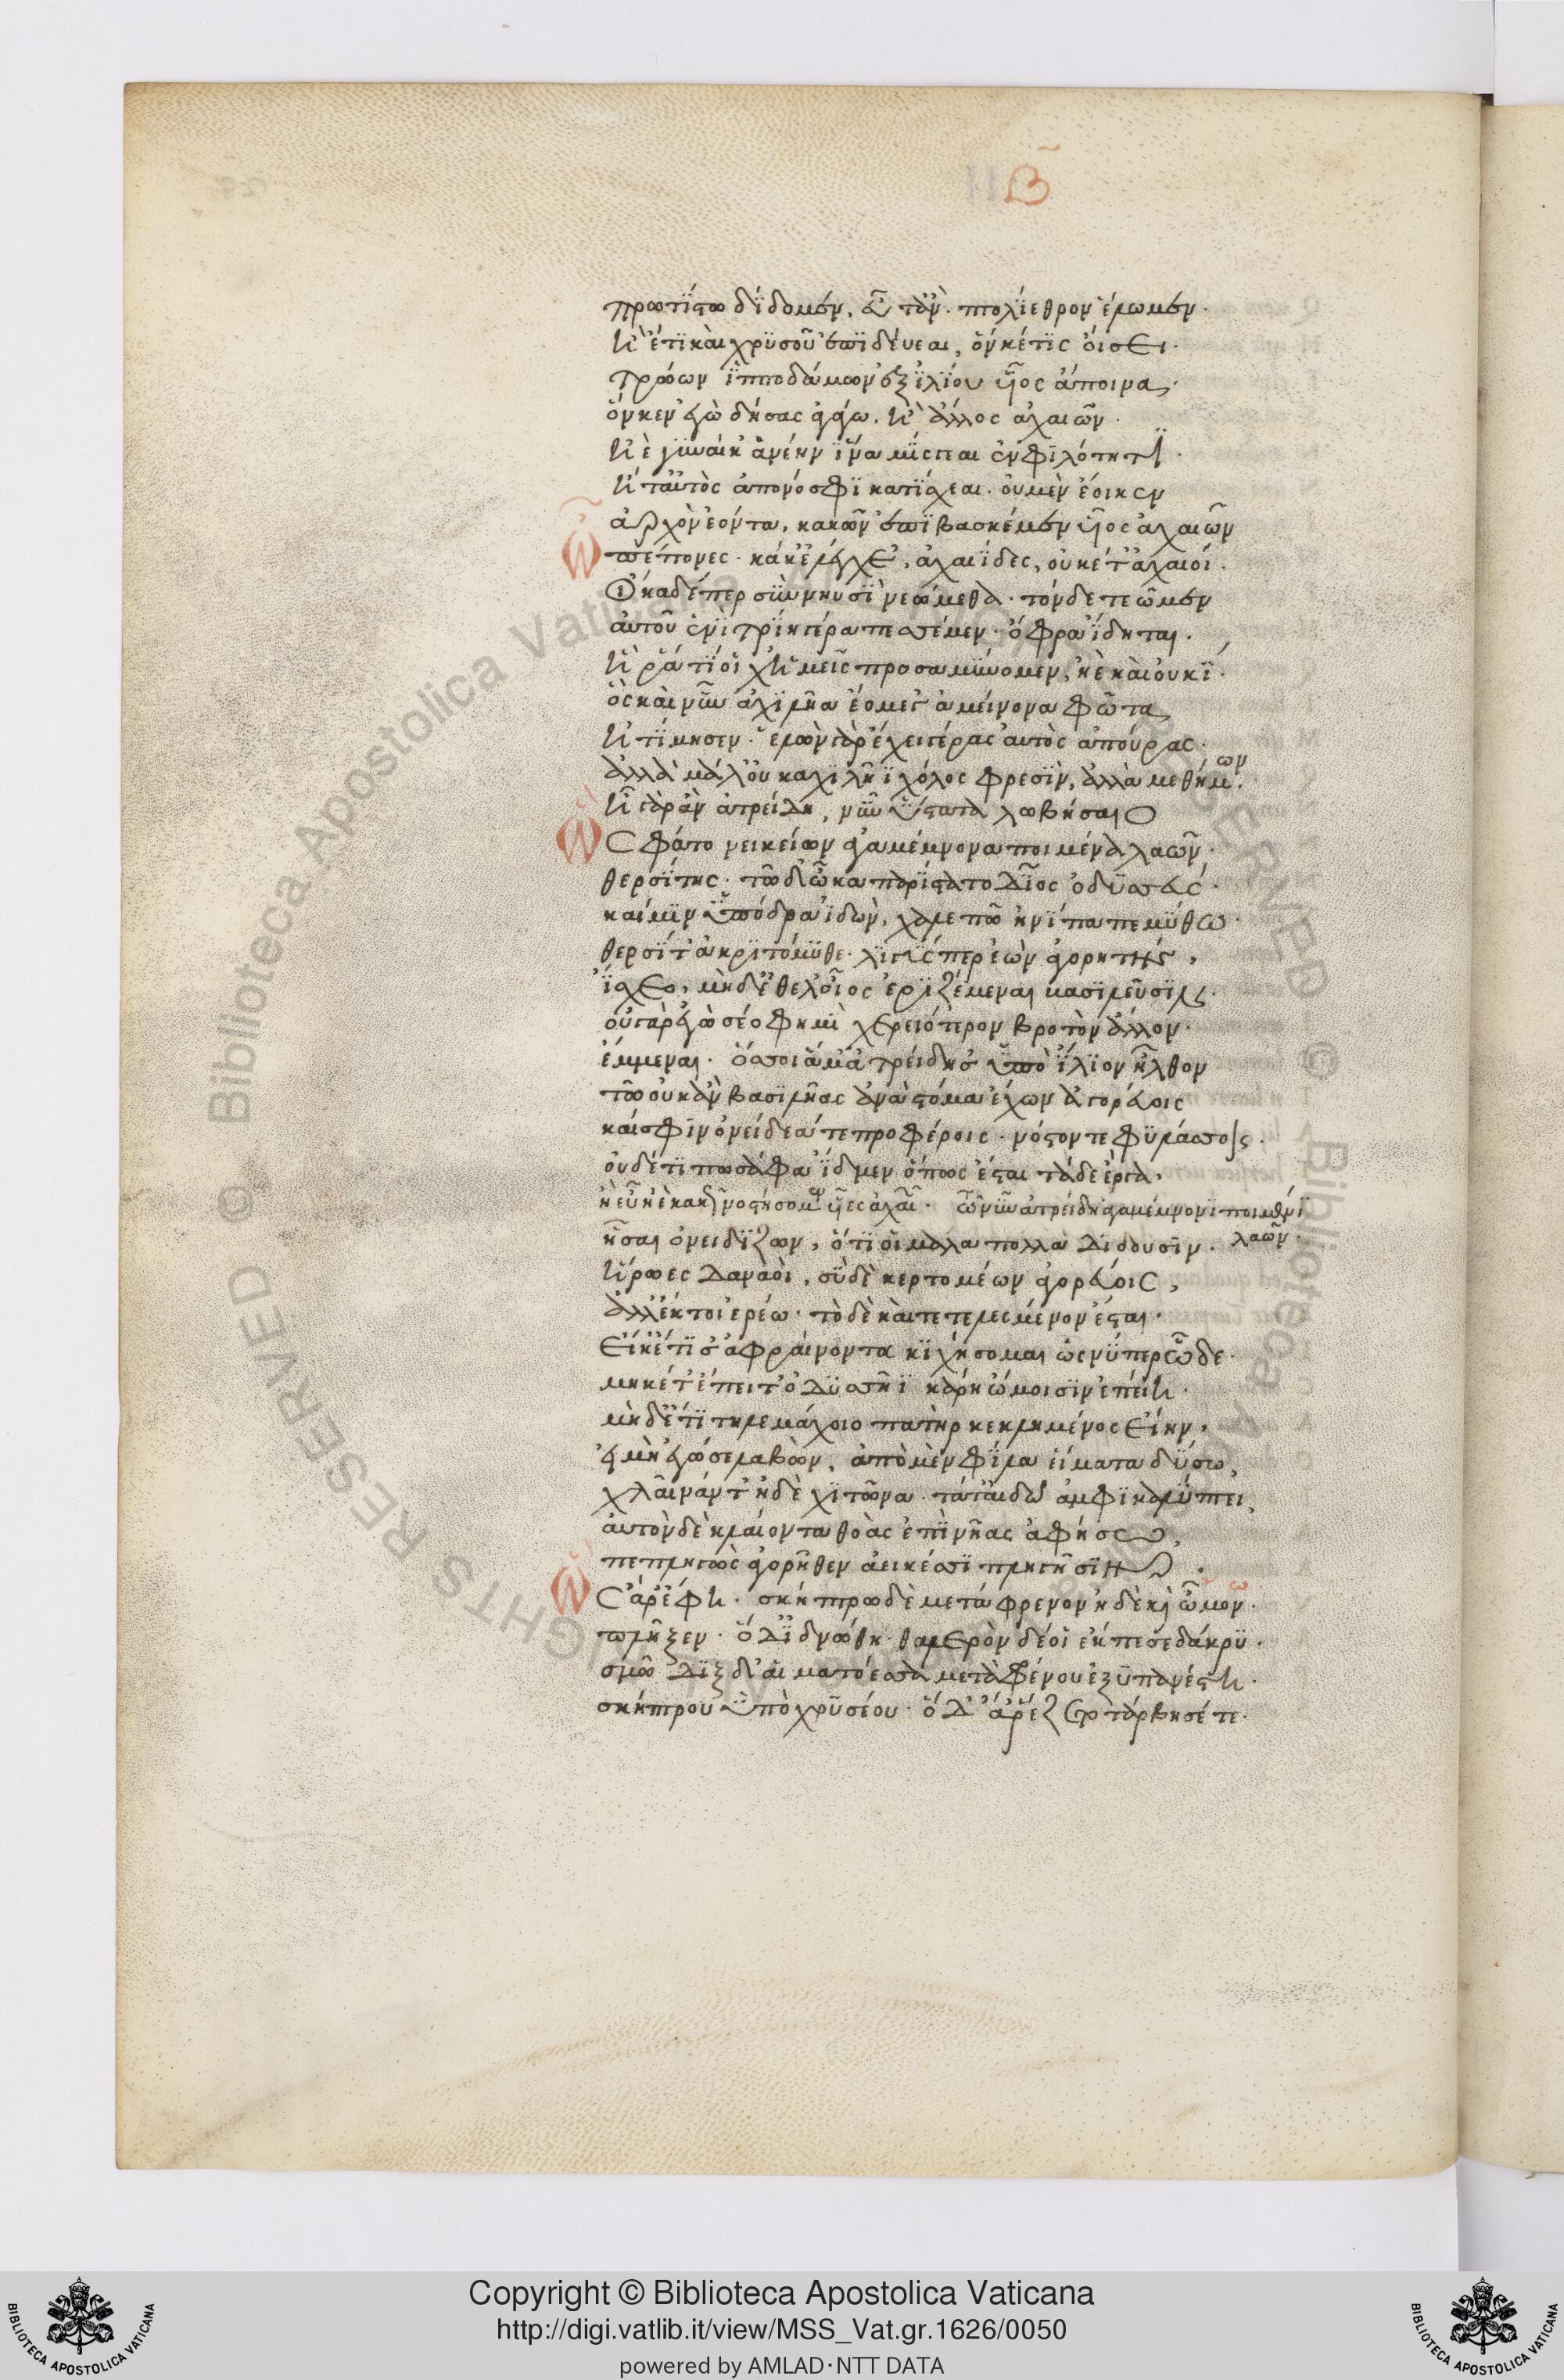 Β
πρωτίστω δίδομεν, εὖτ' ἂν πτολίεθρον ἕλωμεν.
ἢ ἔτι καὶ χρυσοῦ ἐπιδεύεαι, ὅν κέ τις οἴσει
τρώων ἱπποδάμων ἐξ ἰλίου υἷος ἄποινα,
ὅν κεν ἐγὼ δήσας ἀγάγω, ἢ ἄλλος ἀχαιῶν.
ἠὲ γυναῖκα νέην ἵνα μίσγεαι ἐν φιλότητι.
ἥντ' αὐτὸς ἀπονόσφι κατίσχεαι. οὐ μὲν ἔοικεν
ἀρχὸν ἐόντα, κακῶν ἐπιβασκέμεν υἷας ἀχαιῶν
ὦ πέπονες. κάκ' ἐλέγχε', ἀχαιΐδες, οὐκέτ' ἀχαιοί.
οἴκαδέ περ σὺν νηυσὶ νεώμεθα. τόνδε δ' ἐῶμεν
αὐτοῦ ἐνὶ τροίῃ γέρα πεσσέμεν. ὄφρα ἴδηται.
ἤ ῥά τι οἱ χ' ἡμεῖς προσαμύνομεν, ἠὲ καὶ οὐκί.
ὃς καὶ νῦν ἀχιλῆα ἕο μέγ' ἀμείνονα φῶτα
ἠτίμησεν. ἑλὼν γὰρ ἔχει γέρας αὐτὸς ἀπούρας.
ἀλλὰ μάλ' οὐκ ἀχιλῆϊ χόλος φρεσὶν, ἀλλὰ μεθήμων.
ἦ γὰρ ἂν ἀτρείδη, νῦν ὕστατα λωβήσαιο
ὣς φάτο νεικείων ἀγαμέμνονα ποιμένα λαῶν.
θερσίτης. τῶ δ' ὦκα παρίστατο δῖος ὀδυσσεύς.
καί μιν ὑπόδρα ἰδὼν, χαλεπῶ ἠνίπαπε μύθω.
θερσῖτ' ἀκριτόμυθε. λιγύς περ ἐὼν ἀγορητής,
ἴσχεο, μηδ' ἔθελ' οἶος ἐριζέμεναι βασιλεῦσιν.
οὐ γὰρ ἐγὼ σέο φημὶ χερειότερον βροτὸν ἄλλον.
ἔμμεναι. ὅσσοι ἅμ' ἀτρείδης ὑπὸ ἴλιον ἦλθον
τῶ οὐκ ἂν βασιλῆας ἀνὰ στόμα ἔχων ἀγορεύοις
καί σφιν ὀνείδεά τε προφέροις. νόστον τε φυλάσσοις.
οὐδέ τί πω σάφα ἴδμεν ὅπως ἔσται τάδε ἔργα,
ἢ εὖ ἠὲ κακῶς νοστήσομεν υἷες ἀχαιῶν. τῶ νῦν ἀτρείδη ἀγαμέμνονι ποιμένι
λαῶν.
ἧσαι ὀνειδίζων, ὅτι οἱ μάλα πολλὰ διδοῦσιν.
ἥρωες δαναοὶ, σὺ δὲ κερτομέων ἀγορεύοις,
ἀλλ' ἔκ τοι ἐρέω. τὸ δὲ καὶ τετελεσμένον ἔσται.
εἴ κ' ἔτι σ' ἀφραίνοντα κιχήσομαι ὥς νύ περ ὧδε.
μηκέτ' ἔπειτ' ὀδυσῆϊ κάρη ὤμοισιν ἐπείη.
μὴδ' ἔτι τηλεμάχοιο πατὴρ κεκλημένος εἴην,
εἰ μὴ ἐγώ σε λαβὼν, ἀπὸ μὲν φίλα εἵματα δύσω,
χλαῖνάν τ' ἠδὲ χιτῶνα τά τ' αἰδῶ ἀμφικαλύπτει,
αὐτὸν δὲ κλαίοντα θοὰς ἐπὶ νῆας ἀφήσω,
πεπληγὼς ἀγορῆθεν ἀεικέσσι πληγῆσιν.
ὣς ἄρ' ἔφη. σκήπτρω δὲ μετάφρενον ἠδὲ καὶ ὤμω
πλῆξεν. ὃ δ' ἰδνώθη. θαλερὸν δέ οἱ ἔκπεσε δάκρυ.
σμῶδιξ δ' αἱματόεσσα μεταφρένου ἐξυπανέστη.
σκήπτρου ὑπὸ χρυσέου. ὃ δ' ἄρ' ἕζετο τάρβησέ τε.
Copyright © Biblioteca Apostolica Vaticana
http://digi.vatlib.it/view/MSS_Vat.gr.1626/0050
powered by AMLAD·NTT DATA